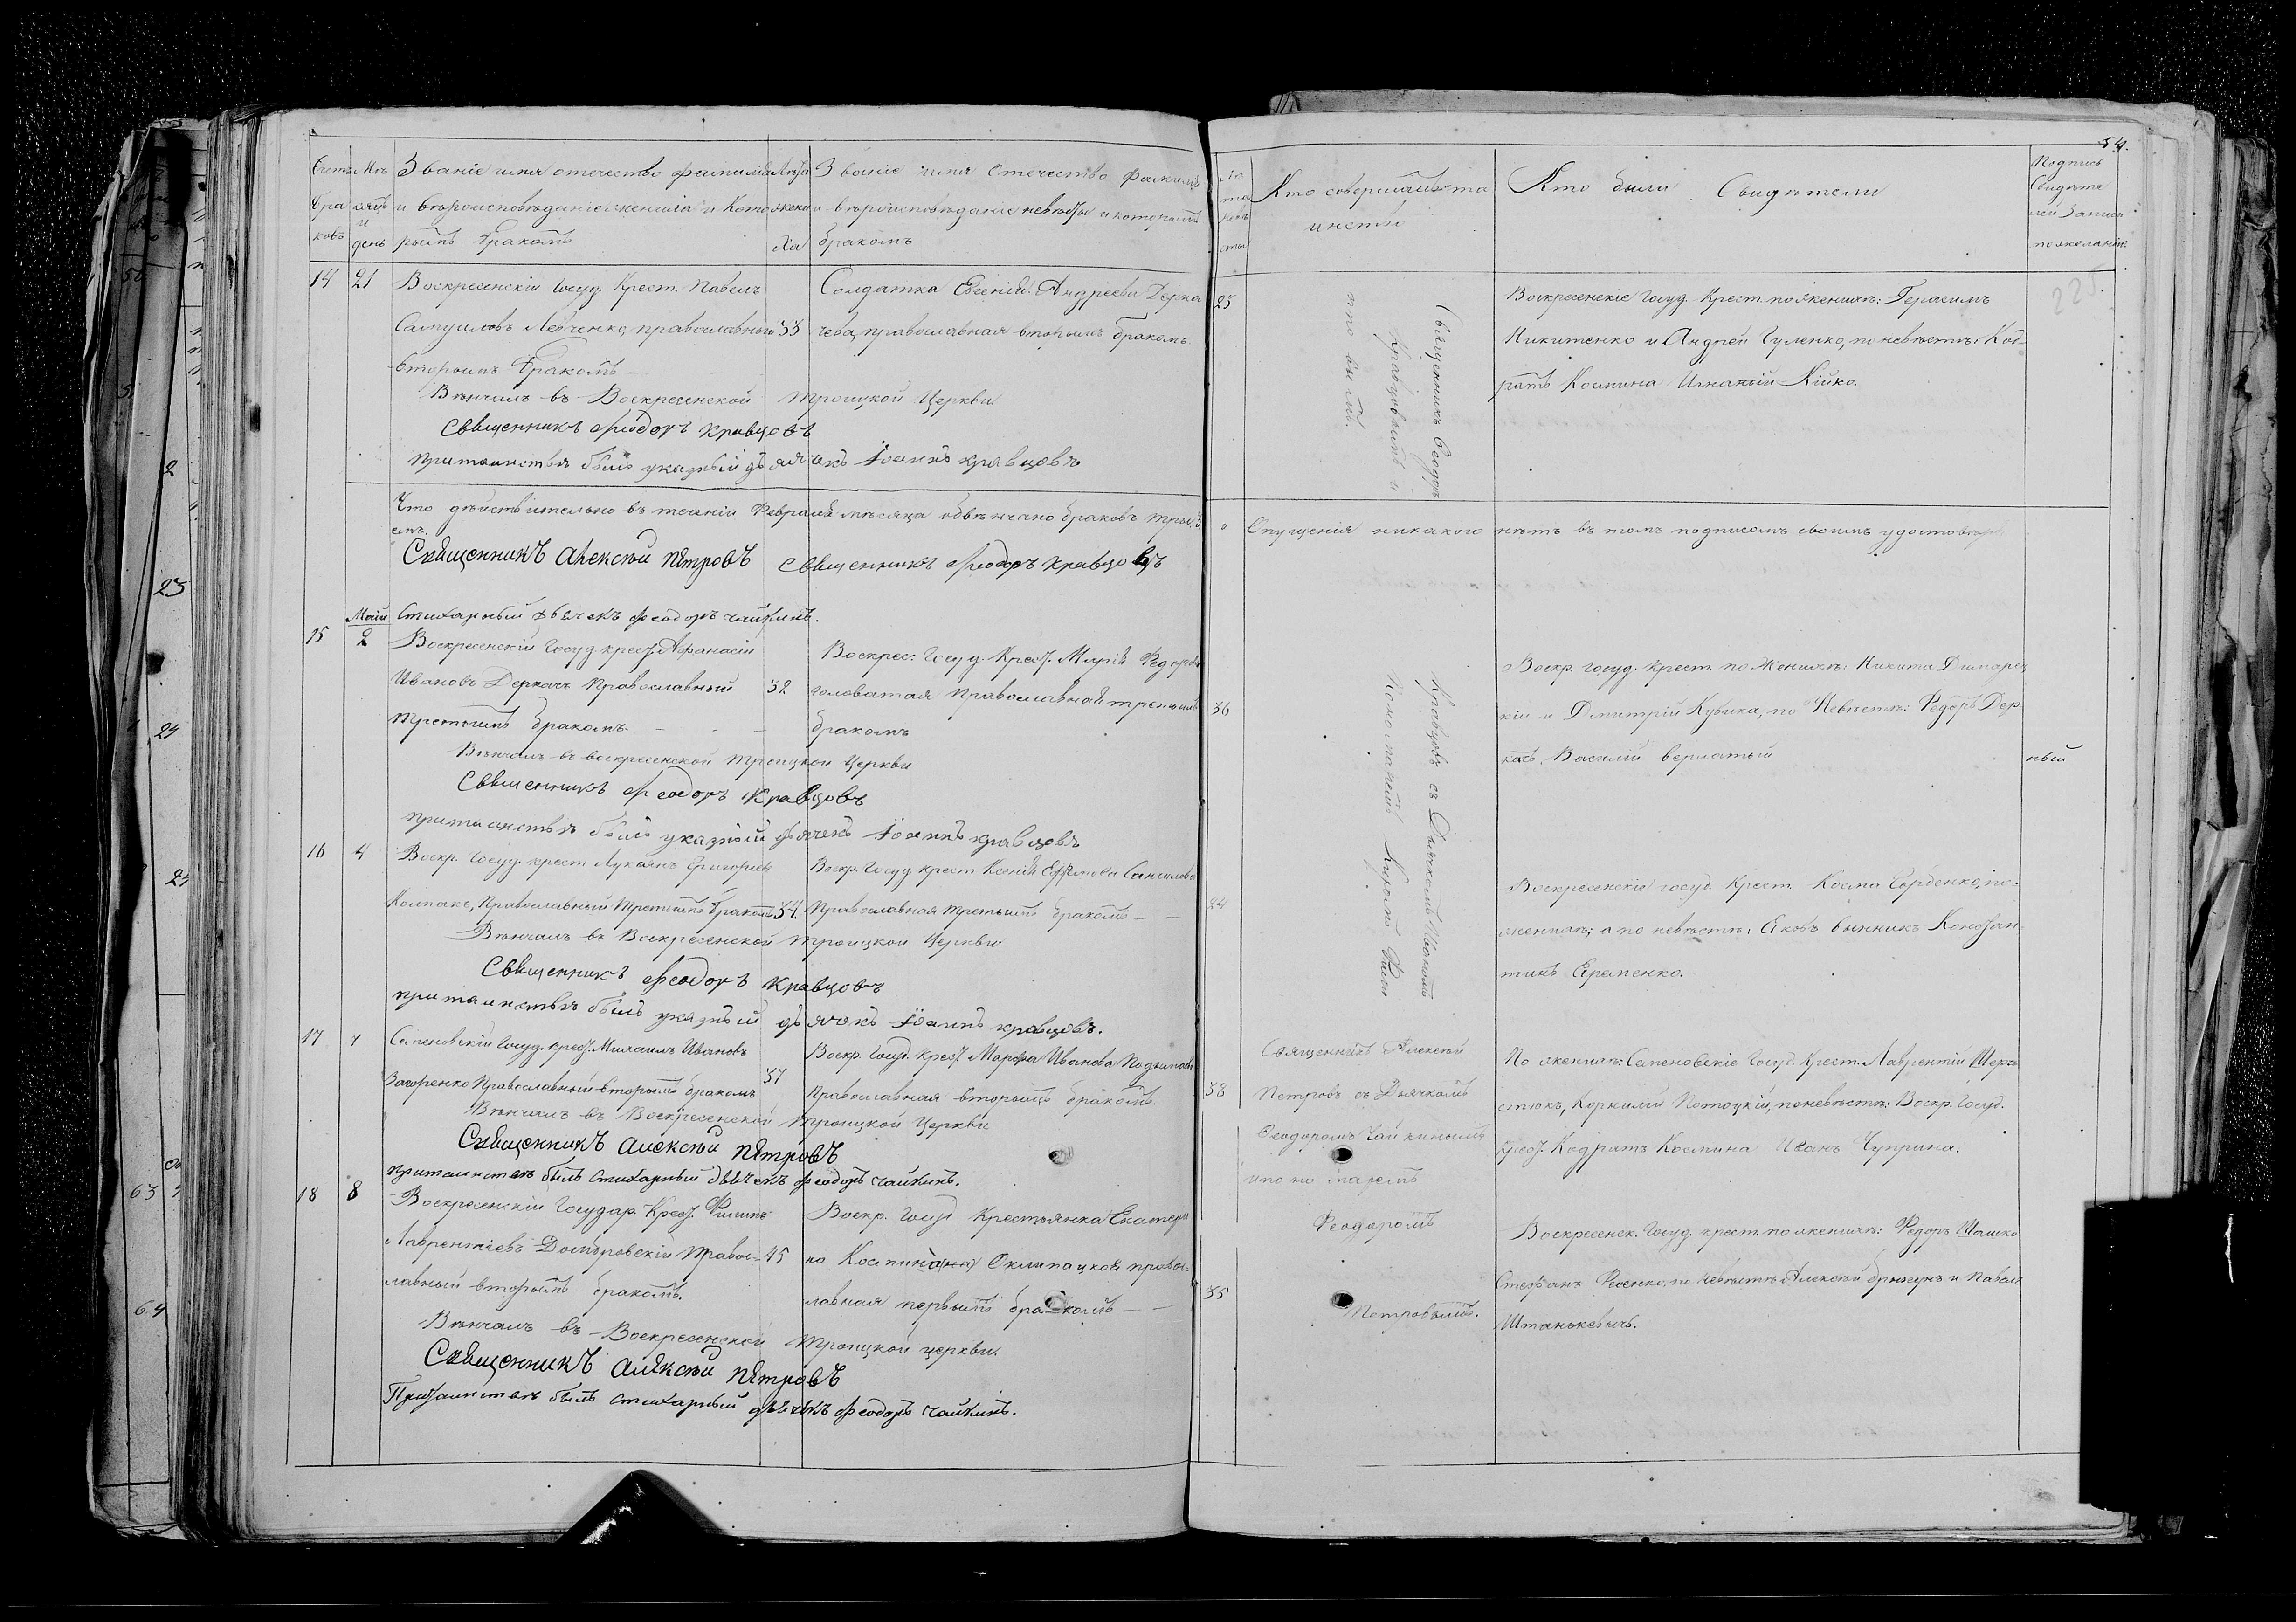 54.
Счетъ Мѣ Званіе имя отечество фамилія Лѣта Званіе имя отечество фамилія
бра сяцъ и вѣроисповѣданіе жениха и кото жени и вѣроисповѣданіе невѣсты и которымъ
ковъ и день рымъ бракомъ ха бракомъ
14 21 Воскресенскій Госуд. Крест. Павелъ Солдатка Евгенія Андреева Дерка
Самуиловъ Левченко, православный 33 чева, православная вторымъ бракомъ.
вторымъ бракомъ
Вѣнчалъ въ Воскресенской Троицкой Церкви
Священникъ Феодоръ Кравцовъ
при таинствѣ былъ указный дьячекъ Іоаннъ Кравцовъ
Что дѣйствительно въ теченіи Февраля мѣсяца обвѣнчано браковъ три
Священникъ Алексѣй Петровъ Священникъ Феодоръ Кравцовъ
Стихарный дьячекъ Феодоръ Чайкинъ.
Маій
15 2 Воскресенскій Госуд. крест. Афанасій Воскрес. Госуд. Крест. Марія Федорова
Ивановъ Деркачъ Православный 32 головатая православная третьимъ
третьимъ бракомъ. бракомъ
Вѣнчалъ въ воскресенской Троицкой Церкви
Священникъ Феодоръ Кравцовъ
при таинствѣ былъ указный дьячекъ Іоаннъ Кравцовъ
16 4 Воскр. Госуд. крест. Лукьянъ Григорьевъ Воскр. Госуд. крест. Ксенія Ефимова
Колпако, Православный третьимъ бракомъ 54. Православная третьимъ бракомъ
Вѣнчалъ въ Воскресенской Троицкой Церкви
Священникъ Феодоръ Кравцовъ
при таинствѣ былъ указный дьячокъ Іоаннъ Кравцовъ.
17 Семеновскій Госуд. крест. Михаилъ Ивановъ Воскр. Госуд. крест. Марфа Иванова
Загоренко Православный вторымъ бракомъ 37 Православная вторымъ бракомъ.
Вѣнчалъ въ Воскресенской Троицкой Церкви
Священникъ Алексѣй Петровъ
при таинствѣ былъ стихарный дьячекъ Феодоръ Чайкинъ.
18 8 Воскресенскій Государ. Крест. Филипъ Воскр. Госуд Крестьянка Екатери
Лаврентіевъ Домбровскій Правос- 45 на
лавный вторымъ бракомъ. лавная первымъ бракомъ
Вѣнчалъ въ Воскресенской Троицкой церкви.
Священникъ Алексѣй Петровъ
При таинствѣ былъ стихарный дьячекъ Феодоръ Чайкинъ.
Лѣ та невѣ сты Кто совершалъ та инство Кто были Свидѣтели Подпись Свидѣте лей Записи по желанію.
225
25 Воскресенскіе Госуд. Крест. по женихѣ: Герасимъ
Никитенко и Андрей Гуленко, по невѣстѣ: Код-
ратъ Космина Игнатій Кійко.
Священникъ Феодоръ
Кравцовымъ и
Опущенія никакого нѣтъ въ томъ подписомъ своимъ удостовѣр
Воскр. Госуд. Крест. по Женихѣ: Никита Димарец
36 кій и Дмитрій Кубика, по Невѣстѣ: Федоръ Дер
качъ, Василій
ный
Кравцовъ съ Дьячкомъ Иваномъ
Воскресенскіе госуд. Крест. Косма по
женихѣ; а по невѣстѣ: Яковъ винникъ Констан
тинъ Еременко.
Священникъ Алексѣй По женихѣ: Семеновскіе Госуд. Крест. Лаврентій Шер
38 Петровъ съ Дьячкомъ стюкъ, Корнилій Потоцкій, по невѣстѣ: Воскр. Госуд.
Феодоромъ Чайкинымъ Крест. Кодратъ Космина Иванъ Чуприна.
Феодоромъ Воскресенск. Госуд. крест. по женихѣ: Федоръ Шашко
35 Степанъ Фесенко, по невѣстѣ Алексѣй и Павелъ
Петровымъ. Штанькевичъ.